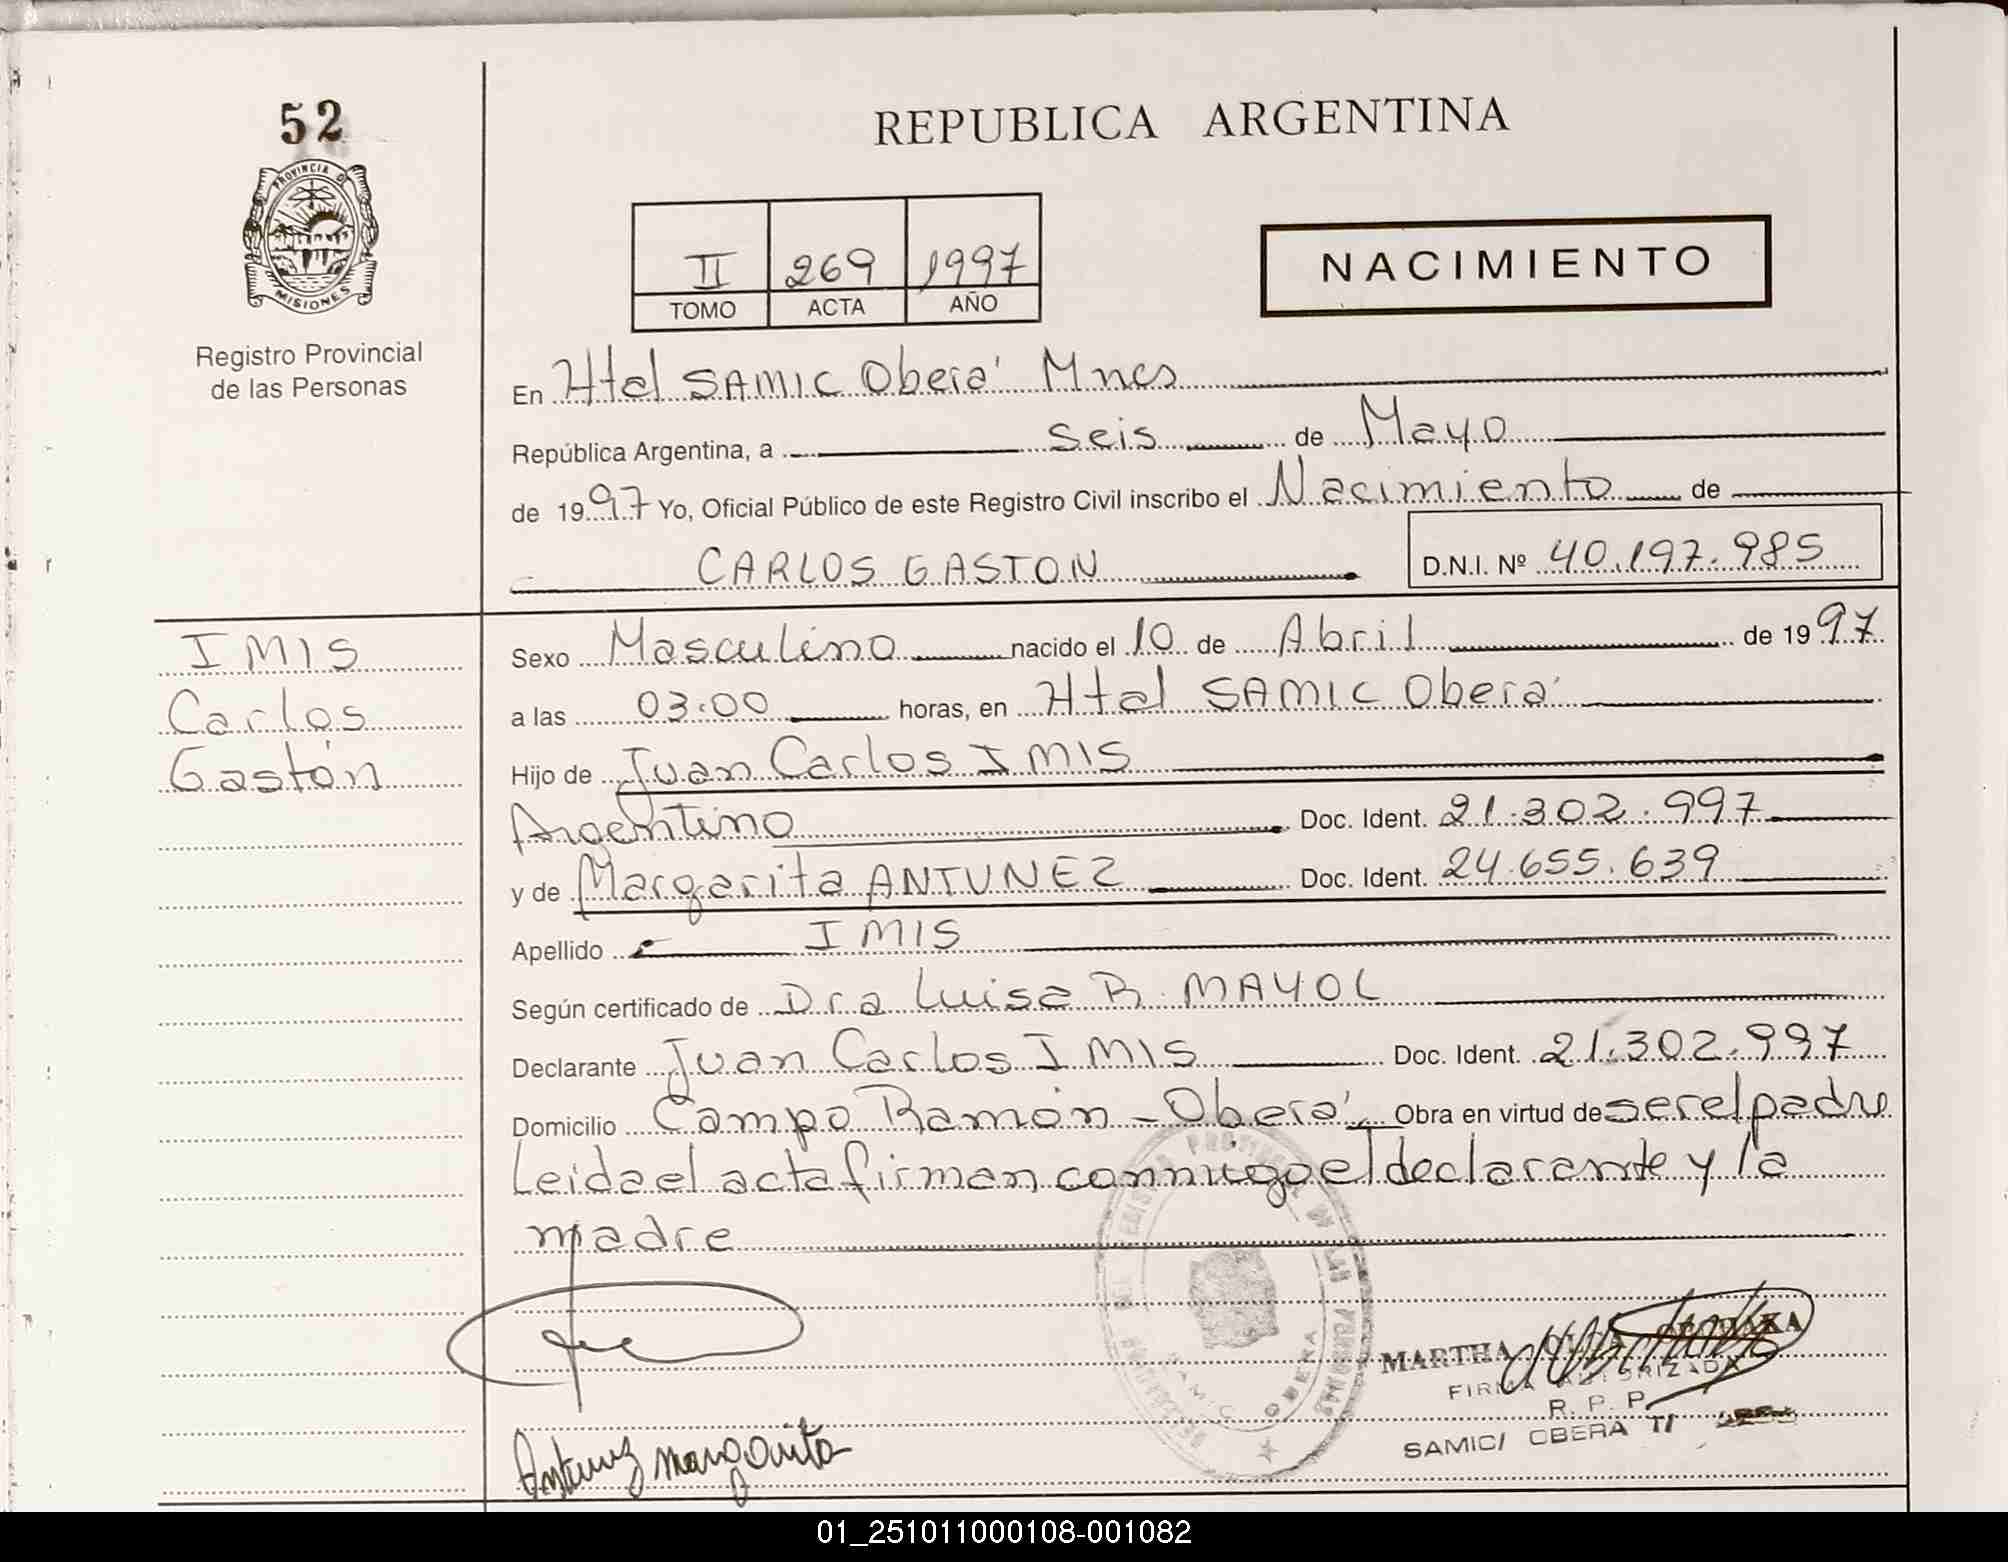 52
PROVINCIA D
MISIONES
Registro Provincial
de las Personas
REPUBLICA ARGENTINA
II 269 1997
TOMO ACTA AÑO
NACIMIENTO
En Htal SAMIC Oberá Mnes
República Argentina, a seis de Mayo
de 1997 Yo, Oficial Público de este Registro Civil inscribo el Nacimiento de
CARLOS GASTON D.N.I. Nº 40.197.985
IMIS
Carlos
Gastón
Sexo Masculino nacido el 10 de Abril de 1997
a las 03:00 horas, en Htal SAMIC Oberá
Hijo de Juan Carlos IMIS
Argentino Doc. Ident. 21.302.997
y de Margarita ANTUNEZ Doc. Ident. 24.655.639
Apellido IMIS
Según certificado de Dra Luisa R. MAYOL
Declarante Juan Carlos IMIS Doc. Ident. 21.302.997
Domicilio Campo Ramón - Oberá Obra en virtud de ser el padre
Leida el acta firman conmigo el declarante y la
madre
Antunez margarita
MARTHA
FIRMA AUTORIZADA
R. P. P.
SAMIC/ OBERA
SAMIC OBERA
01_251011000108-001082